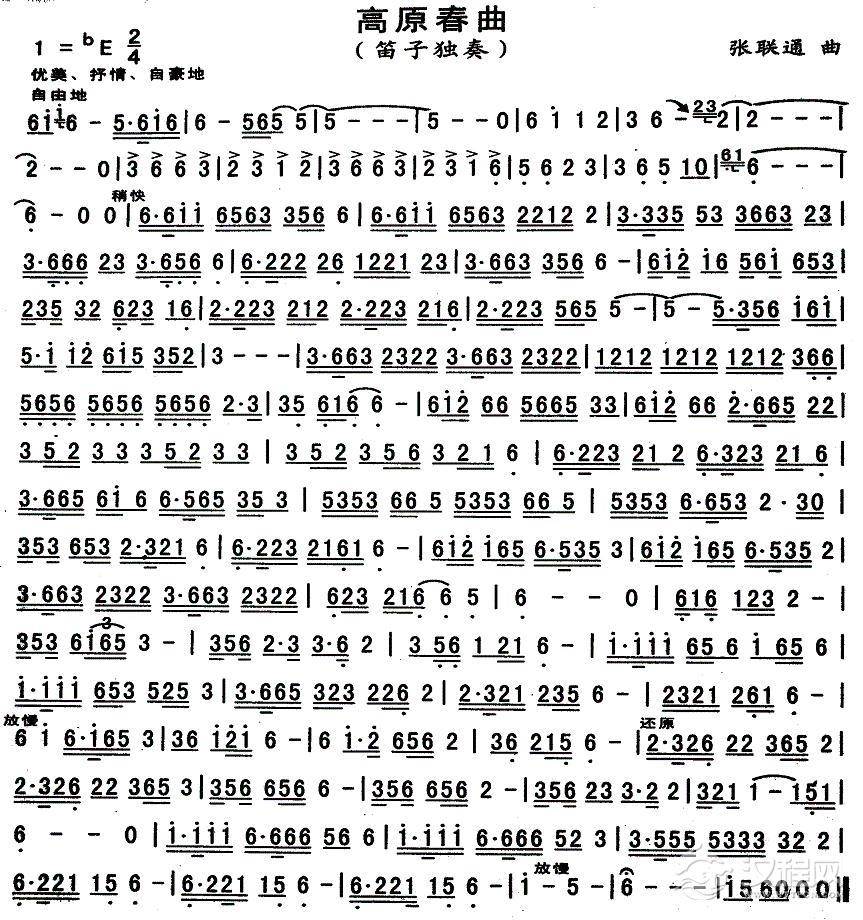 高原春曲
1 = ♭E 2/4
(笛子独奏)
张联通 曲
优美、抒情、自豪地
自由地
6 i 6 - 5·6i6 | 6 - 565 5 | 5 - - - | 5 - - 0 | 6 i 1 2 | 3 6 - 23 2 | 2 - - - |
2 - - 0 | 3 6 6 3 | 2 3 1 2 | 3 6 6 3 | 2 3 1 6 | 5 6 2 3 | 3 6 5 10 | 61 6 - - - |
稍快
6 - 0 0 | 6·6ii 6563 356 6 | 6·6ii 6563 2212 2 | 3·335 53 3663 23 |
3·666 23 3·656 6 | 6·222 26 1221 23 | 3·663 356 6 - | 6i2 i6 56i 653 |
235 32 623 16 | 2·223 212 2·223 216 | 2·223 565 5 - | 5 - 5·356 i6i |
5·i i2 6i5 352 | 3 - - - | 3·663 2322 3·663 2322 | 1212 1212 1212 366 |
5656 5656 5656 2·3 | 35 616 6 - | 6i2 66 5665 33 | 6i2 66 2·665 22 |
3 5 2 3 3 5 2 3 3 | 3 5 2 3 5 6 3 2 1 6 | 6·223 21 2 6·323 21 6 |
3·665 6i 6 6·565 35 3 | 5353 66 5 5353 66 5 | 5353 6·653 2 · 30 |
353 653 2·321 6 | 6·223 2161 6 - | 6i2 i65 6·535 3 | 6i2 i65 6·535 2 |
3·663 2322 3·663 2322 | 623 216 6 5 | 6 - - 0 | 616 123 2 - |
3
353 6i65 3 - | 356 2·3 3·6 2 | 3 56 1 21 6 - | i·iii 65 6 i 65 6 |
i·iii 653 525 3 | 3·665 323 226 2 | 2·321 235 6 - | 2321 261 6 - |
放慢
还原
6 i 6·i65 3 | 36 i2i 6 - | 6 i·2 656 2 | 36 215 6 - | 2·326 22 365 2 |
2·326 22 365 3 | 356 656 6 - | 356 656 2 - | 356 23 3·2 2 | 321 1 - 151 |
6 - - 0 | i·iii 6·666 56 6 | i·iii 6·666 52 3 | 3·555 5333 32 2 |
放慢
6·221 15 6 | 6·221 15 6 - | i - 5 - | 6 - - - | 156000 ‖